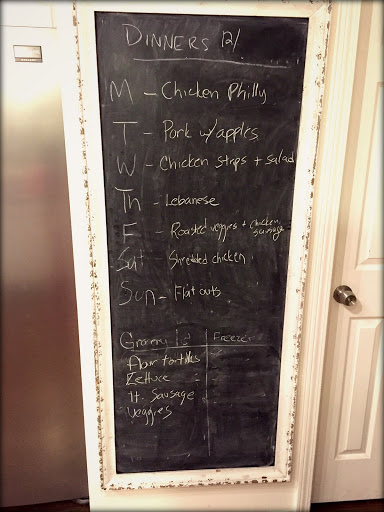 DINNERS 12/
M - Chicken Philly
T - Pork w/ apples
W - Chicken strips + salad
Th - Lebanese
F - Roasted veggies + chicken sausage
Sat - Shredded chicken
Sun - Flat outs
Grocery Freezer
flour tortillas
Lettuce
It. Sausage
Veggies